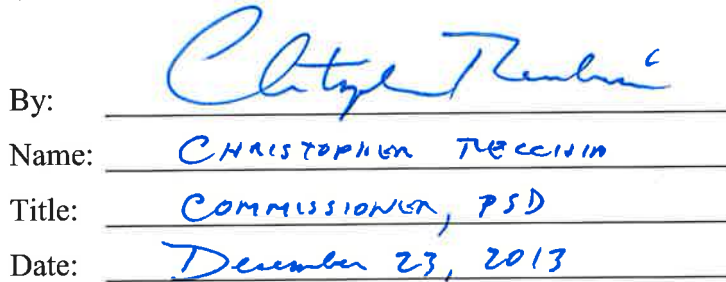 By:
Name: CHRISTOPHER RECCHIA
Title: COMMISSIONER, PSD
Date: December 23, 2013